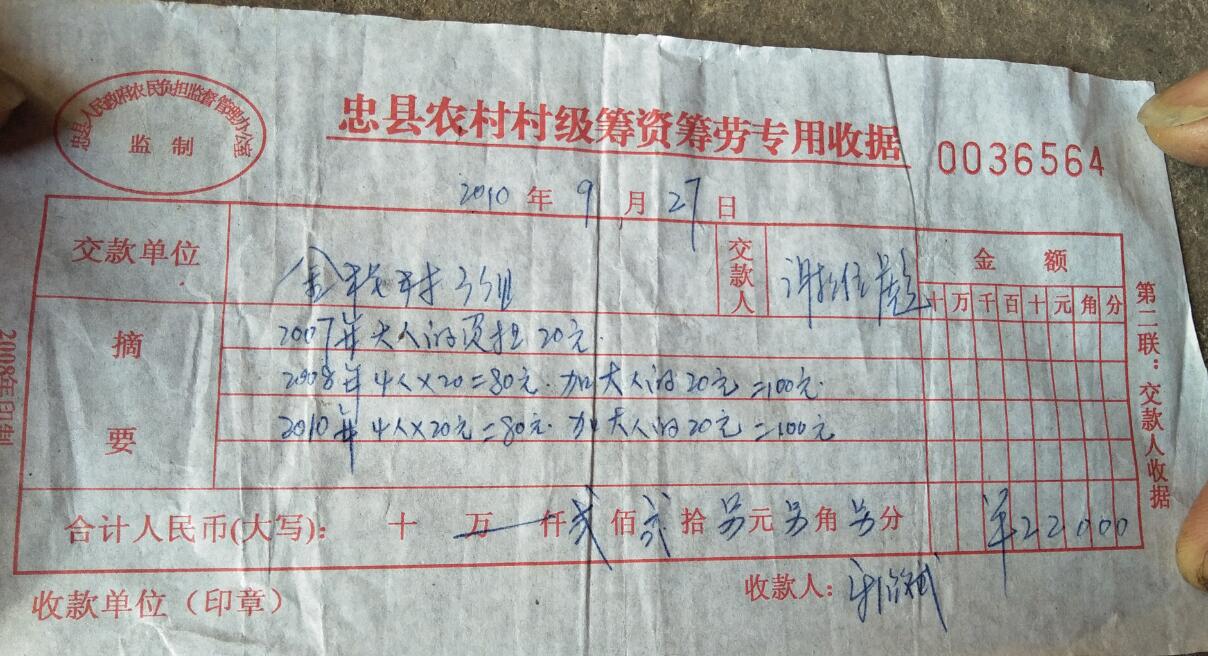 忠县人民政府农民负担监督管理办公室
监制
忠县农村村级筹资筹劳专用收据
0036564
2010年9月27日
交款单位
村3组
交款人
金额
十万千百十元角分
摘要
2007年大人的负担20元.
2008年4人×20=80元.加大人的20元=100元.
2010年4人×20元=80元.加大人的20元=100元
合计人民币(大写): 十万仟贰佰贰拾另元另角另分
¥22000
收款单位（印章）
收款人:
第二联：交款人收据
2008年印制